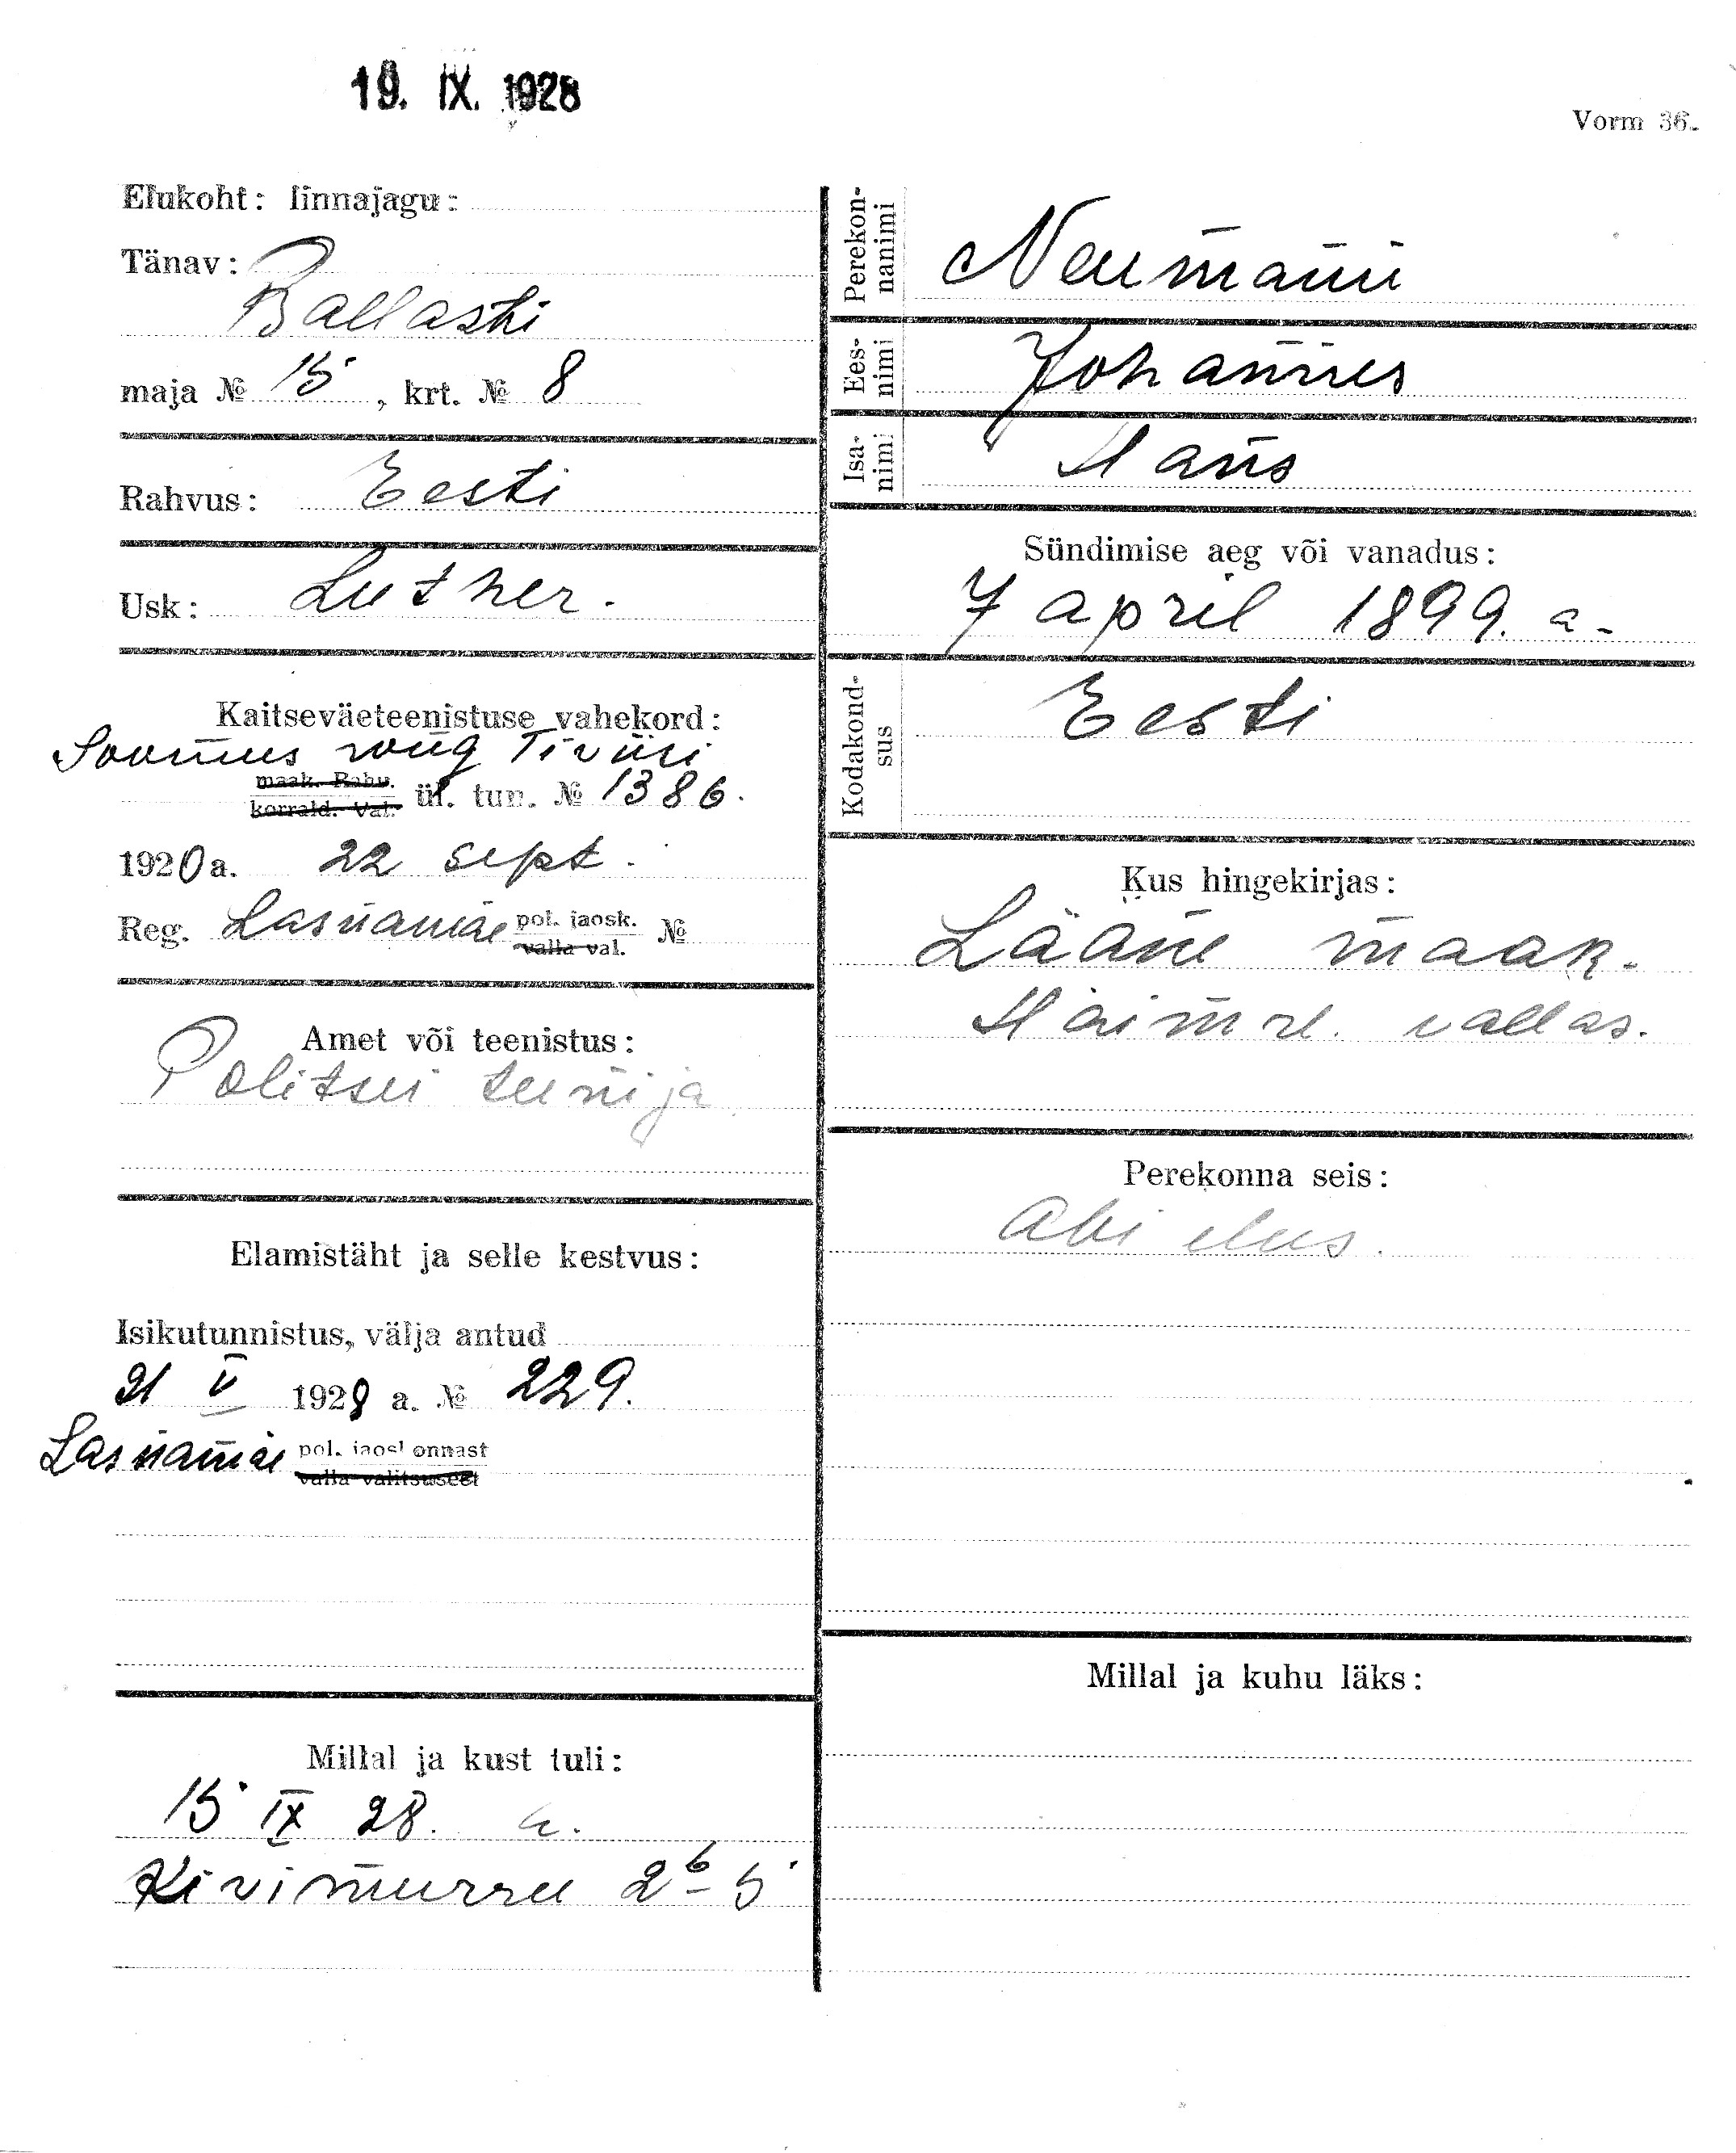 19. IX. 1928
Vorm 36.
Elukoht: linnajagu:
Tänav:
Ballasti
maja № 15, krt. № 8
Rahvus: Eesti
Usk: Luther.
Kaitseväeteenistuse vahekord:
Soomus rong
maak. Rahu.
korrald. Val. ül. tun. № 1386.
1920 a. 22 sept.
Reg. Lasnamäe pol. jaosk. №
valla val.
Amet või teenistus:
Politsei teenija
Elamistäht ja selle kestvus:
Isikutunnistus, välja antud
21 V 1928 a. № 229.
Lasnamäe pol. jaoskonnast
valla valitsusest
Millal ja kust tuli:
15 IX 28. a.
Kivimurru 2b-5
Perekon-
nanimi
Neumann
Ees-
nimi
Johannes
Isa-
nimi
Hans
Sündimise aeg või vanadus:
7 april 1899. a.
Kodakond-
sus
Eesti
Kus hingekirjas:
Lääne maak.
vallas.
Perekonna seis:
Abi elus.
Millal ja kuhu läks: